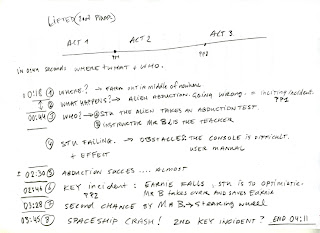 LIFTED (2nd PIXAR)
ACT 1 ACT 2 ACT 3
PP1 PP2
IN 0:44 SECONDS WHERE + WHAT + WHO.
00:18 ① WHERE? → FARM OUT IN MIDDLE OF NOWHERE
② WHAT HAPPENS? → ALIEN ABDUCTION. GOING WRONG. = INCITING INCIDENT.
00:44 ③ WHO? → STU THE ALIEN TAKES AN ABDUCTION TEST PP1
INSTRUCTOR MR B IS THE TEACHER
④ STU FAILING. → OBSTACLE: THE CONSOLE IS DIFFICULT.
+ EFFECT USER MANUAL
± 02:30 ⑤ ABDUCTION SUCCES.... ALMOST
02:46 ⑥ KEY INCIDENT: EARNIE FALLS, STU IS TO OPTIMISTIC.
PP2 MR B TAKES OVER AND SAVES EARNIE
03:28 ⑦ SECOND CHANCE BY MR B → STEARING WHEEL
03:45 ⑧ SPACESHIP CRASH! 2ND KEY INCIDENT? END 04:11